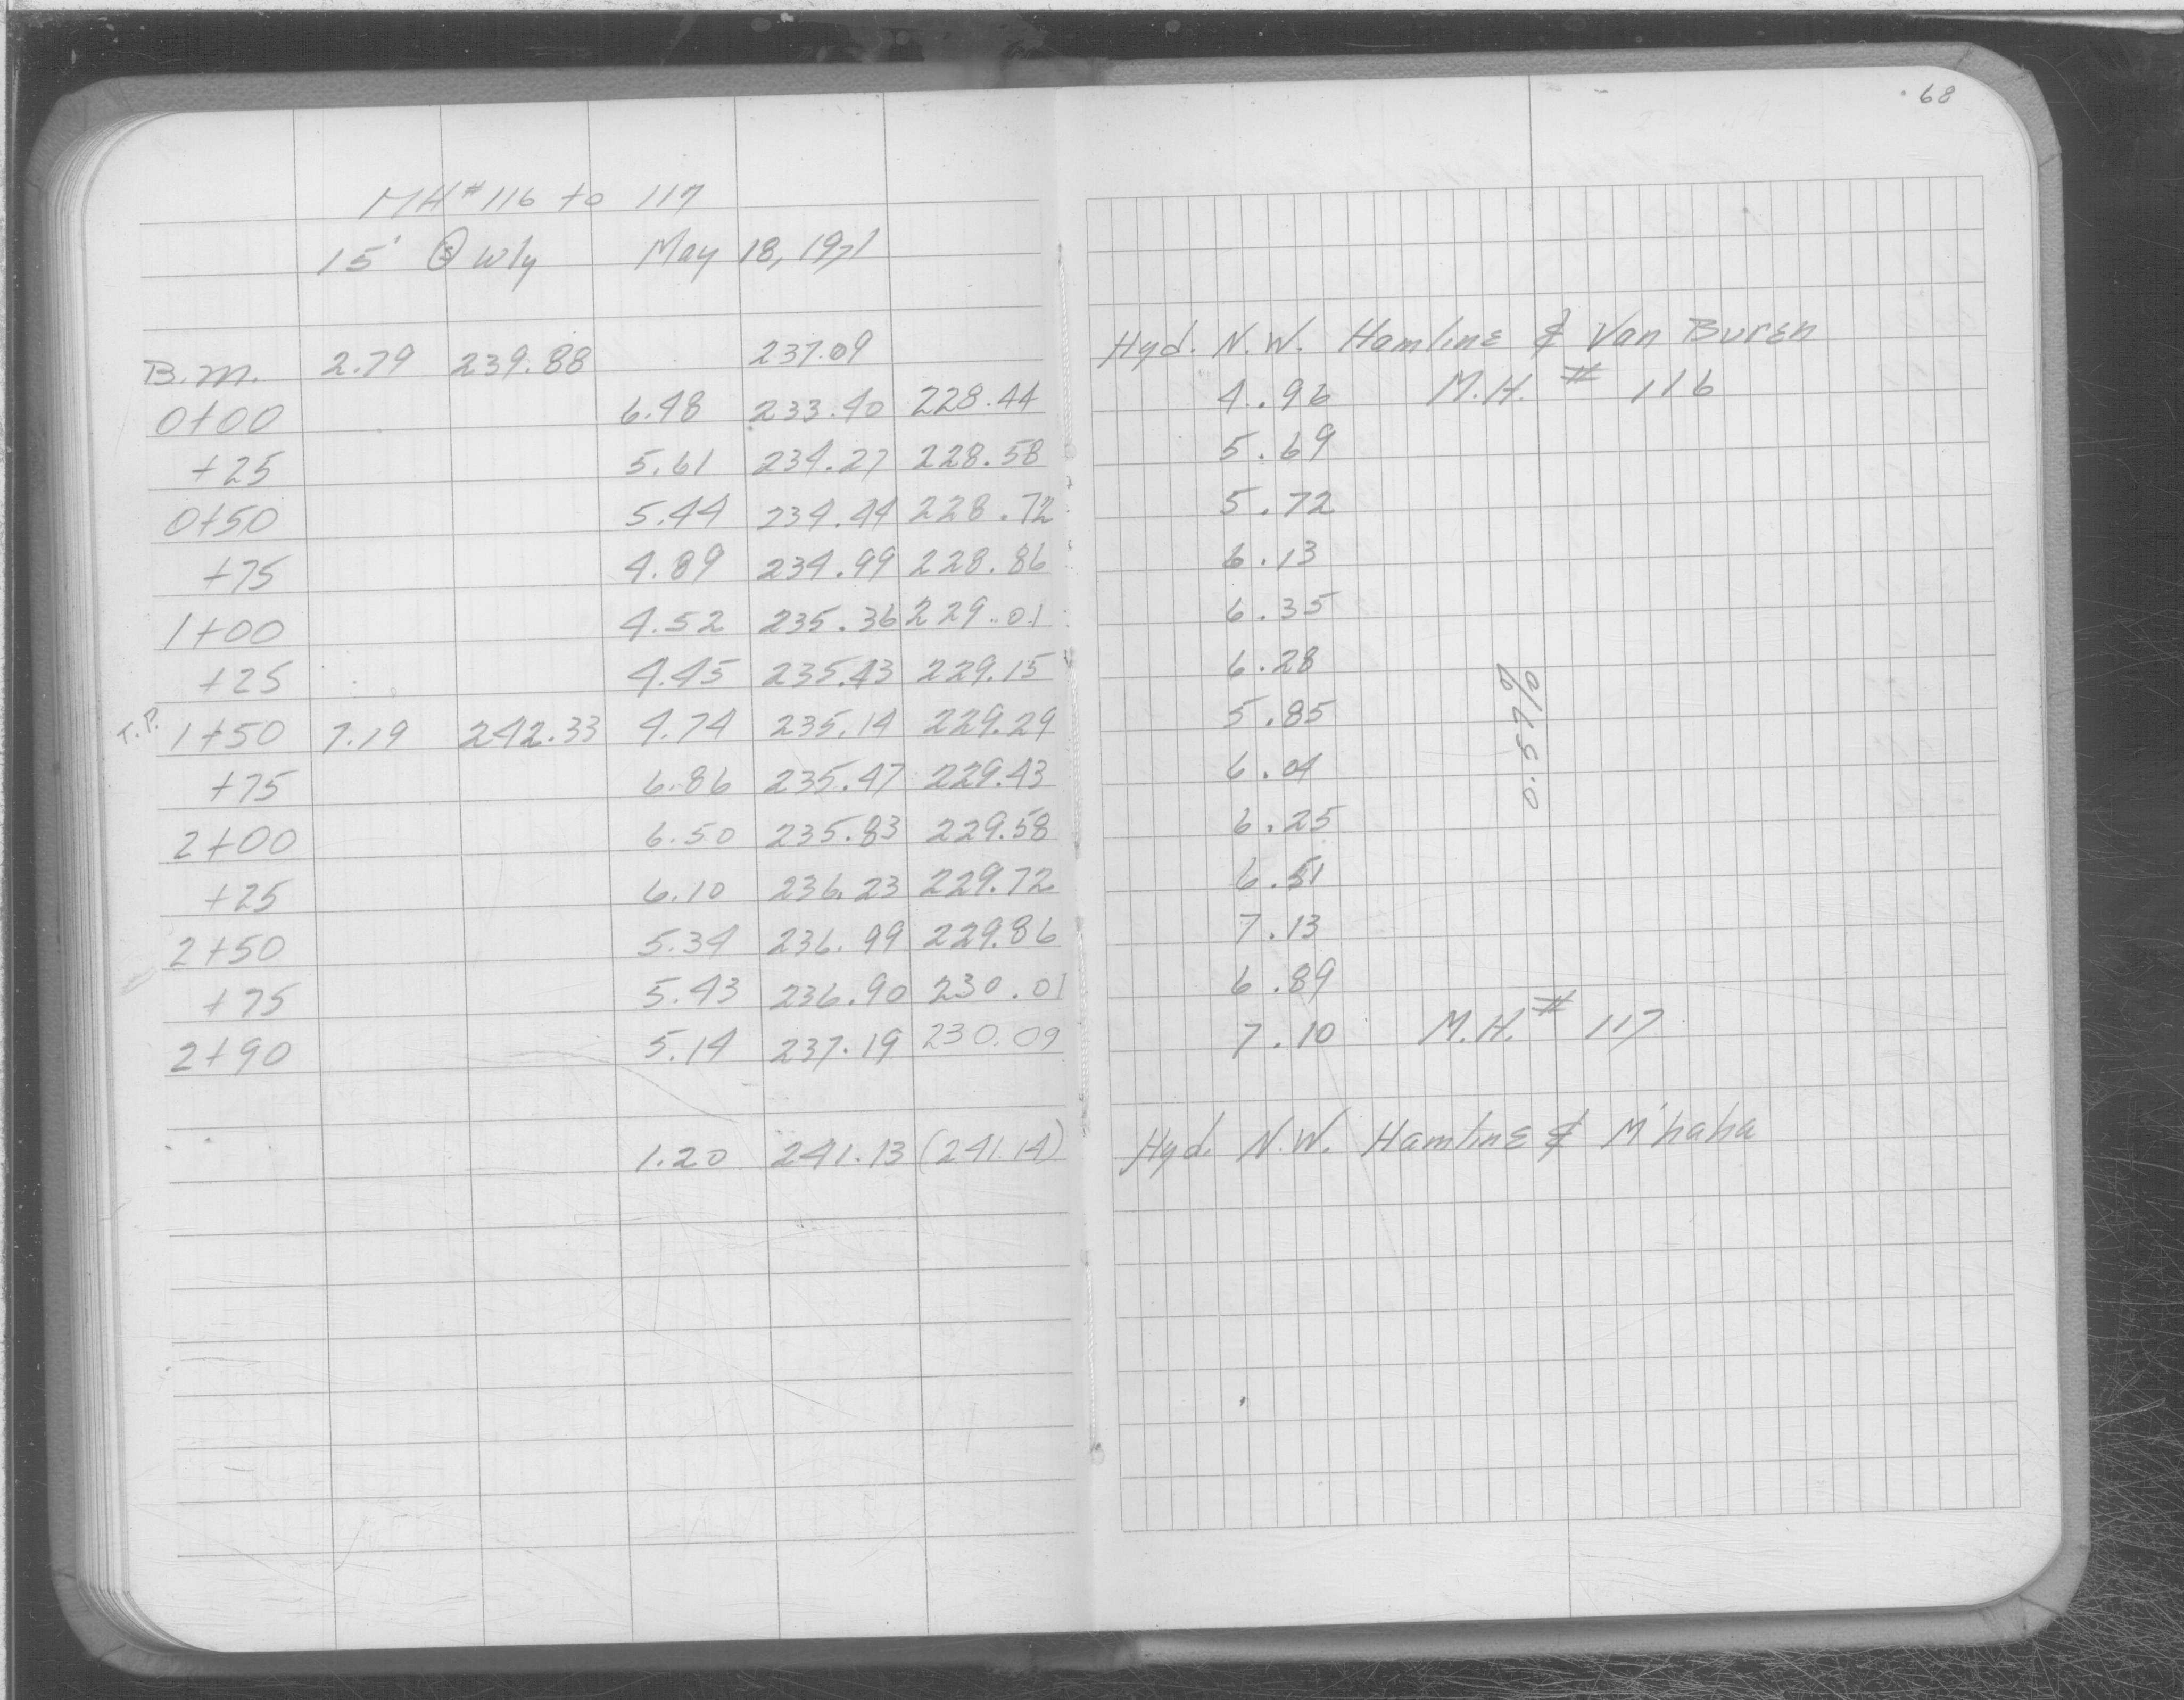 68
MH# 116 to 117
15' Ⓢ Wly May 18, 1971
B.M. 2.79 239.88 237.09 Hyd. N.W. Hamline & Van Buren
0+00 6.48 233.40 228.44 4.96 M.H. # 116
+25 5.61 234.27 228.58 5.69
0+50 5.44 234.44 228.72 5.72
+75 4.89 234.99 228.86 6.13
1+00 4.52 235.36 229.01 6.35
+25 4.45 235.43 229.15 6.28
T.P. 1+50 7.19 242.33 4.74 235.14 229.29 5.85
+75 6.86 235.47 229.43 6.04
2+00 6.50 235.83 229.58 6.25
+25 6.10 236.23 229.72 6.51
2+50 5.34 236.99 229.86 7.13
+75 5.43 236.90 230.01 6.89
2+90 5.14 237.19 230.09 7.10 M.H.# 117
0.57%
1.20 241.13 (241.14) Hyd. N.W. Hamline & M'haha